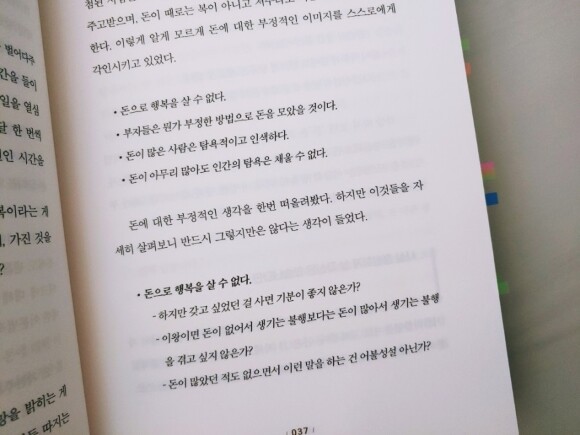 벌어다주
간을 들이
일을 열심
한 번씩
시간을
복이라는 게
가진 것을
?
밝히는 게
따지는
주고받으며, 돈이 때로는 복이 아니고
한다. 이렇게 알게 모르게 돈에 대한 부정적인 이미지를 스스로에게
각인시키고 있었다.
• 돈으로 행복을 살 수 없다.
• 부자들은 뭔가 부정한 방법으로 돈을 모았을 것이다.
• 돈이 많은 사람은 탐욕적이고 인색하다.
• 돈이 아무리 많아도 인간의 탐욕은 채울 수 없다.
돈에 대한 부정적인 생각을 한번 떠올려봤다. 하지만 이것들을 자
세히 살펴보니 반드시 그렇지만은 않다는 생각이 들었다.
• 돈으로 행복을 살 수 없다.
- 하지만 갖고 싶었던 걸 사면 기분이 좋지 않은가?
- 이왕이면 돈이 없어서 생기는 불행보다는 돈이 많아서 생기는 불행
을 겪고 싶지 않은가?
- 돈이 많았던 적도 없으면서 이런 말을 하는 건 어불성설 아닌가?
037